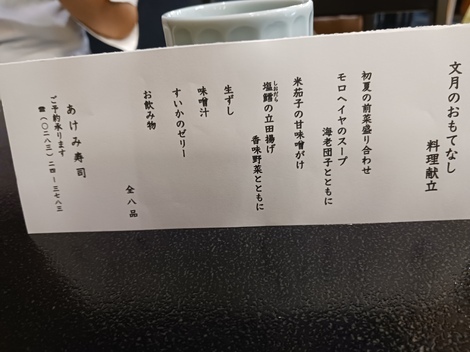 文月のおもてなし
料理献立
初夏の前菜盛り合わせ
モロヘイヤのスープ
海老団子とともに
米茄子の甘味噌がけ
塩鱈の立田揚げ
しおだら
香味野菜とともに
生ずし
味噌汁
すいかのゼリー
お飲み物
全八品
あけみ寿司
ご予約承ります
☎(〇二八三)二四-三七八三